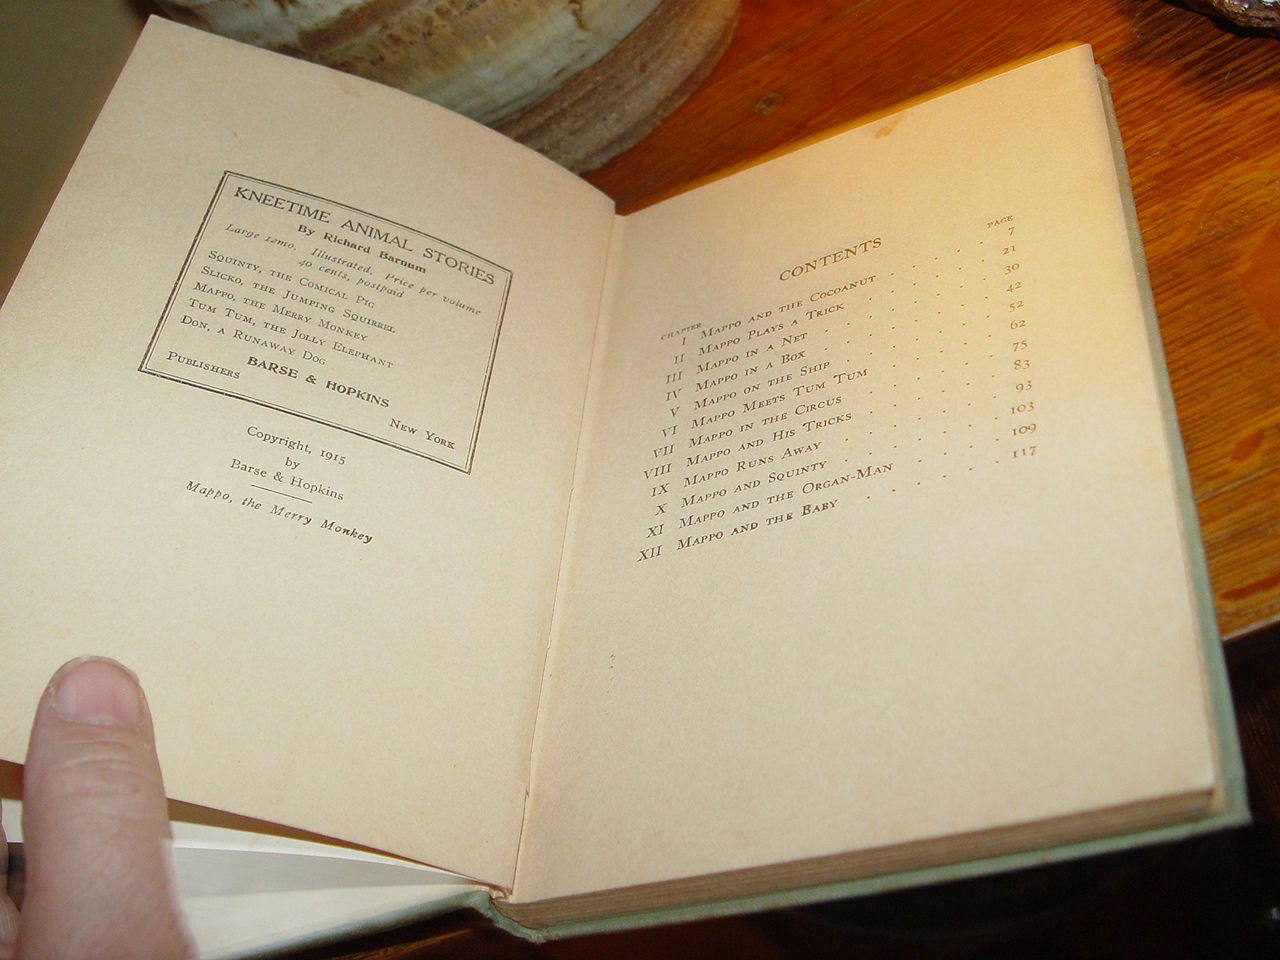 KNEETIME ANIMAL STORIES
By Richard Barnum
Large 12mo. Illustrated. Price per volume
40 cents, postpaid
SQUINTY, THE COMICAL PIG
SLICKO, THE JUMPING SQUIRREL
MAPPO, THE MERRY MONKEY
TUM TUM, THE JOLLY ELEPHANT
DON, A RUNAWAY DOG
BARSE & HOPKINS
PUBLISHERS NEW YORK
Copyright, 1915
by
Barse & Hopkins
Mappo, the Merry Monkey
CONTENTS
CHAPTER PAGE
I MAPPO AND THE COCOANUT . . . . . 7
II MAPPO PLAYS A TRICK . . . . . 21
III MAPPO IN A NET . . . . . 30
IV MAPPO IN A BOX . . . . . 42
V MAPPO ON THE SHIP . . . . . 52
VI MAPPO MEETS TUM TUM . . . . . 62
VII MAPPO IN THE CIRCUS . . . . . 75
VIII MAPPO AND HIS TRICKS . . . . . 83
IX MAPPO RUNS AWAY . . . . . 93
X MAPPO AND SQUINTY . . . . . 103
XI MAPPO AND THE ORGAN-MAN . . . . . 109
XII MAPPO AND THE BABY . . . . . 117